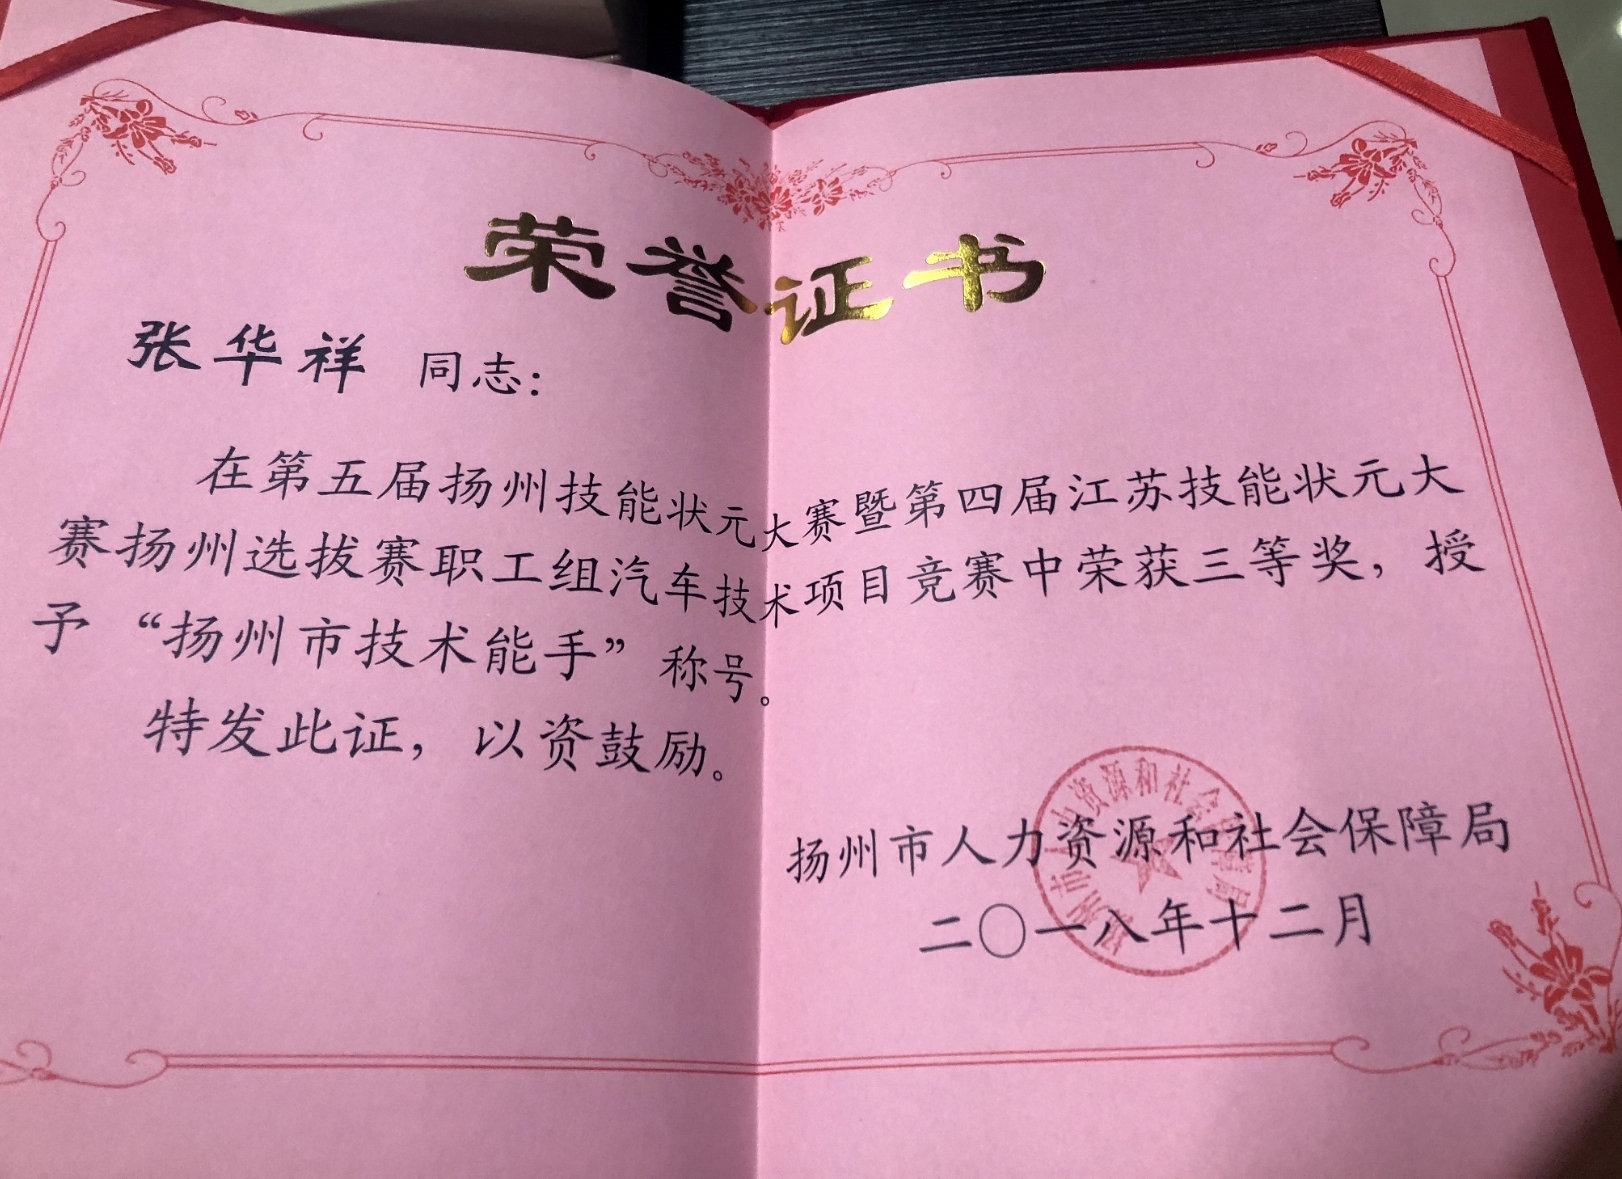 荣誉证书
张华祥 同志：
在第五届扬州技能状元大赛暨第四届江苏技能状元大
赛扬州选拔赛职工组汽车技术项目竞赛中荣获三等奖，授
予“扬州市技术能手”称号。
特发此证，以资鼓励。
扬州市人力资源和社会保障局
二〇一八年十二月